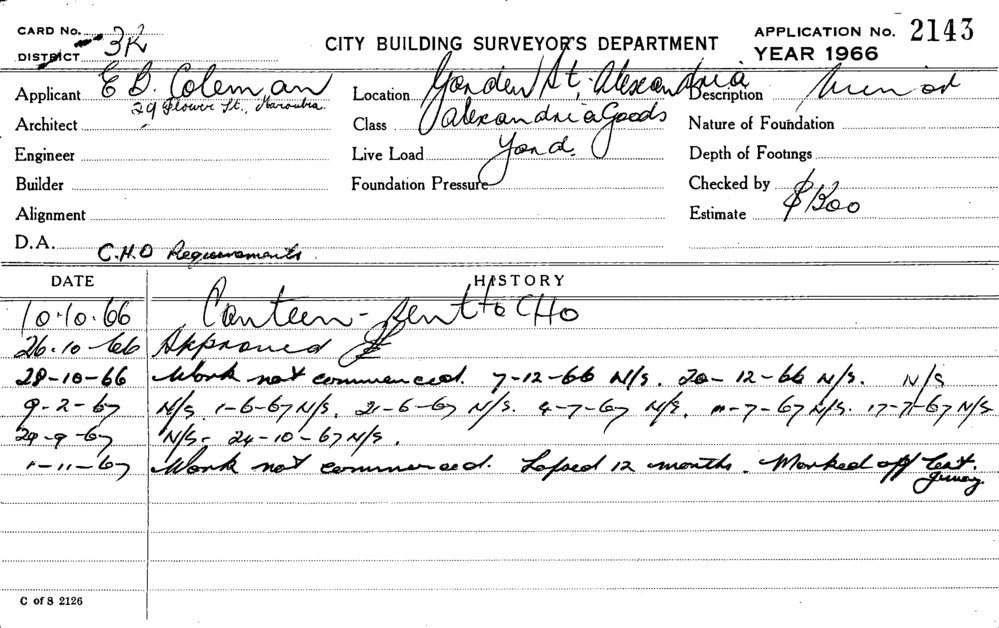 CARD No.
DISTRICT 3K
CITY BUILDING SURVEYOR'S DEPARTMENT
APPLICATION No. 2143
YEAR 1966
Applicant E B. Coleman
29 Flower St., Maroubra
Location Garden St, Alexandria
Description Minor
Architect
Class Alexandria Goods
Nature of Foundation
Engineer
Live Load Yard.
Depth of Footings
Builder
Foundation Pressure
Checked by
Alignment
Estimate $1200
D.A. C.H.O Requirements.
DATE HISTORY
10.10.66 Canteen - Sent to CHO
26.10.66 Approved
28-10-66 Work not commenced. 7-12-66 N/S. 20-12-66 N/S. N/S
9-2-67 N/S. 1-6-67 N/S. 21-6-67 N/S. 4-7-67 N/S. 11-7-67 N/S. 17-7-67 N/S
29-9-67 N/S - 24-10-67 N/S.
1-11-67 Work not commenced. Lapsed 12 months. Marked off
C of S 2126